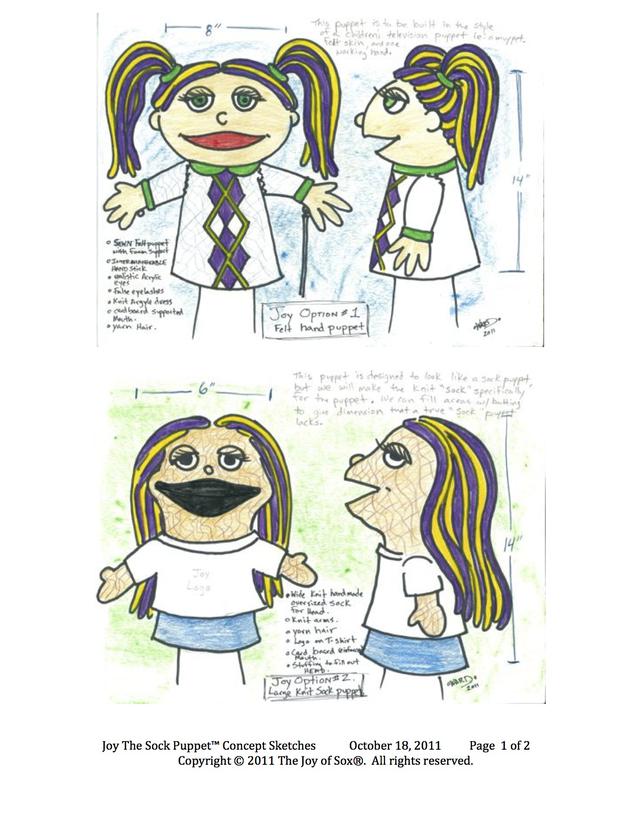 8"
This puppet is to be built in the style
of a children's television puppet ie. a muppet.
Felt skin, and one
working hand.
14"
Sewn Felt puppet
with Foam Support
Interchangeable
Hand Stick
Realistic Acrylic
eyes
False eyelashes
Knit Argyle dress
cardboard supported
Mouth.
yarn Hair.
Joy Option #1
Felt hand puppet
WARD
2011
This puppet is designed to look like a sock puppt
but we will make the knit "sock" specifically
for the puppet. We can fill areas w/ batting
to give dimension that a true "sock" puppet
lacks.
6"
14"
Joy
Logo
Wide Knit handmade
oversized sock
for Head.
Knit arms.
yarn hair
Logo on T-shirt
Card board reinforced
Mouth.
Stuffing to fill out
HEAD.
Joy Option #2.
Large Knit Sock puppet
WARD
2011
Joy The Sock Puppet™ Concept Sketches October 18, 2011 Page 1 of 2
Copyright © 2011 The Joy of Sox®. All rights reserved.